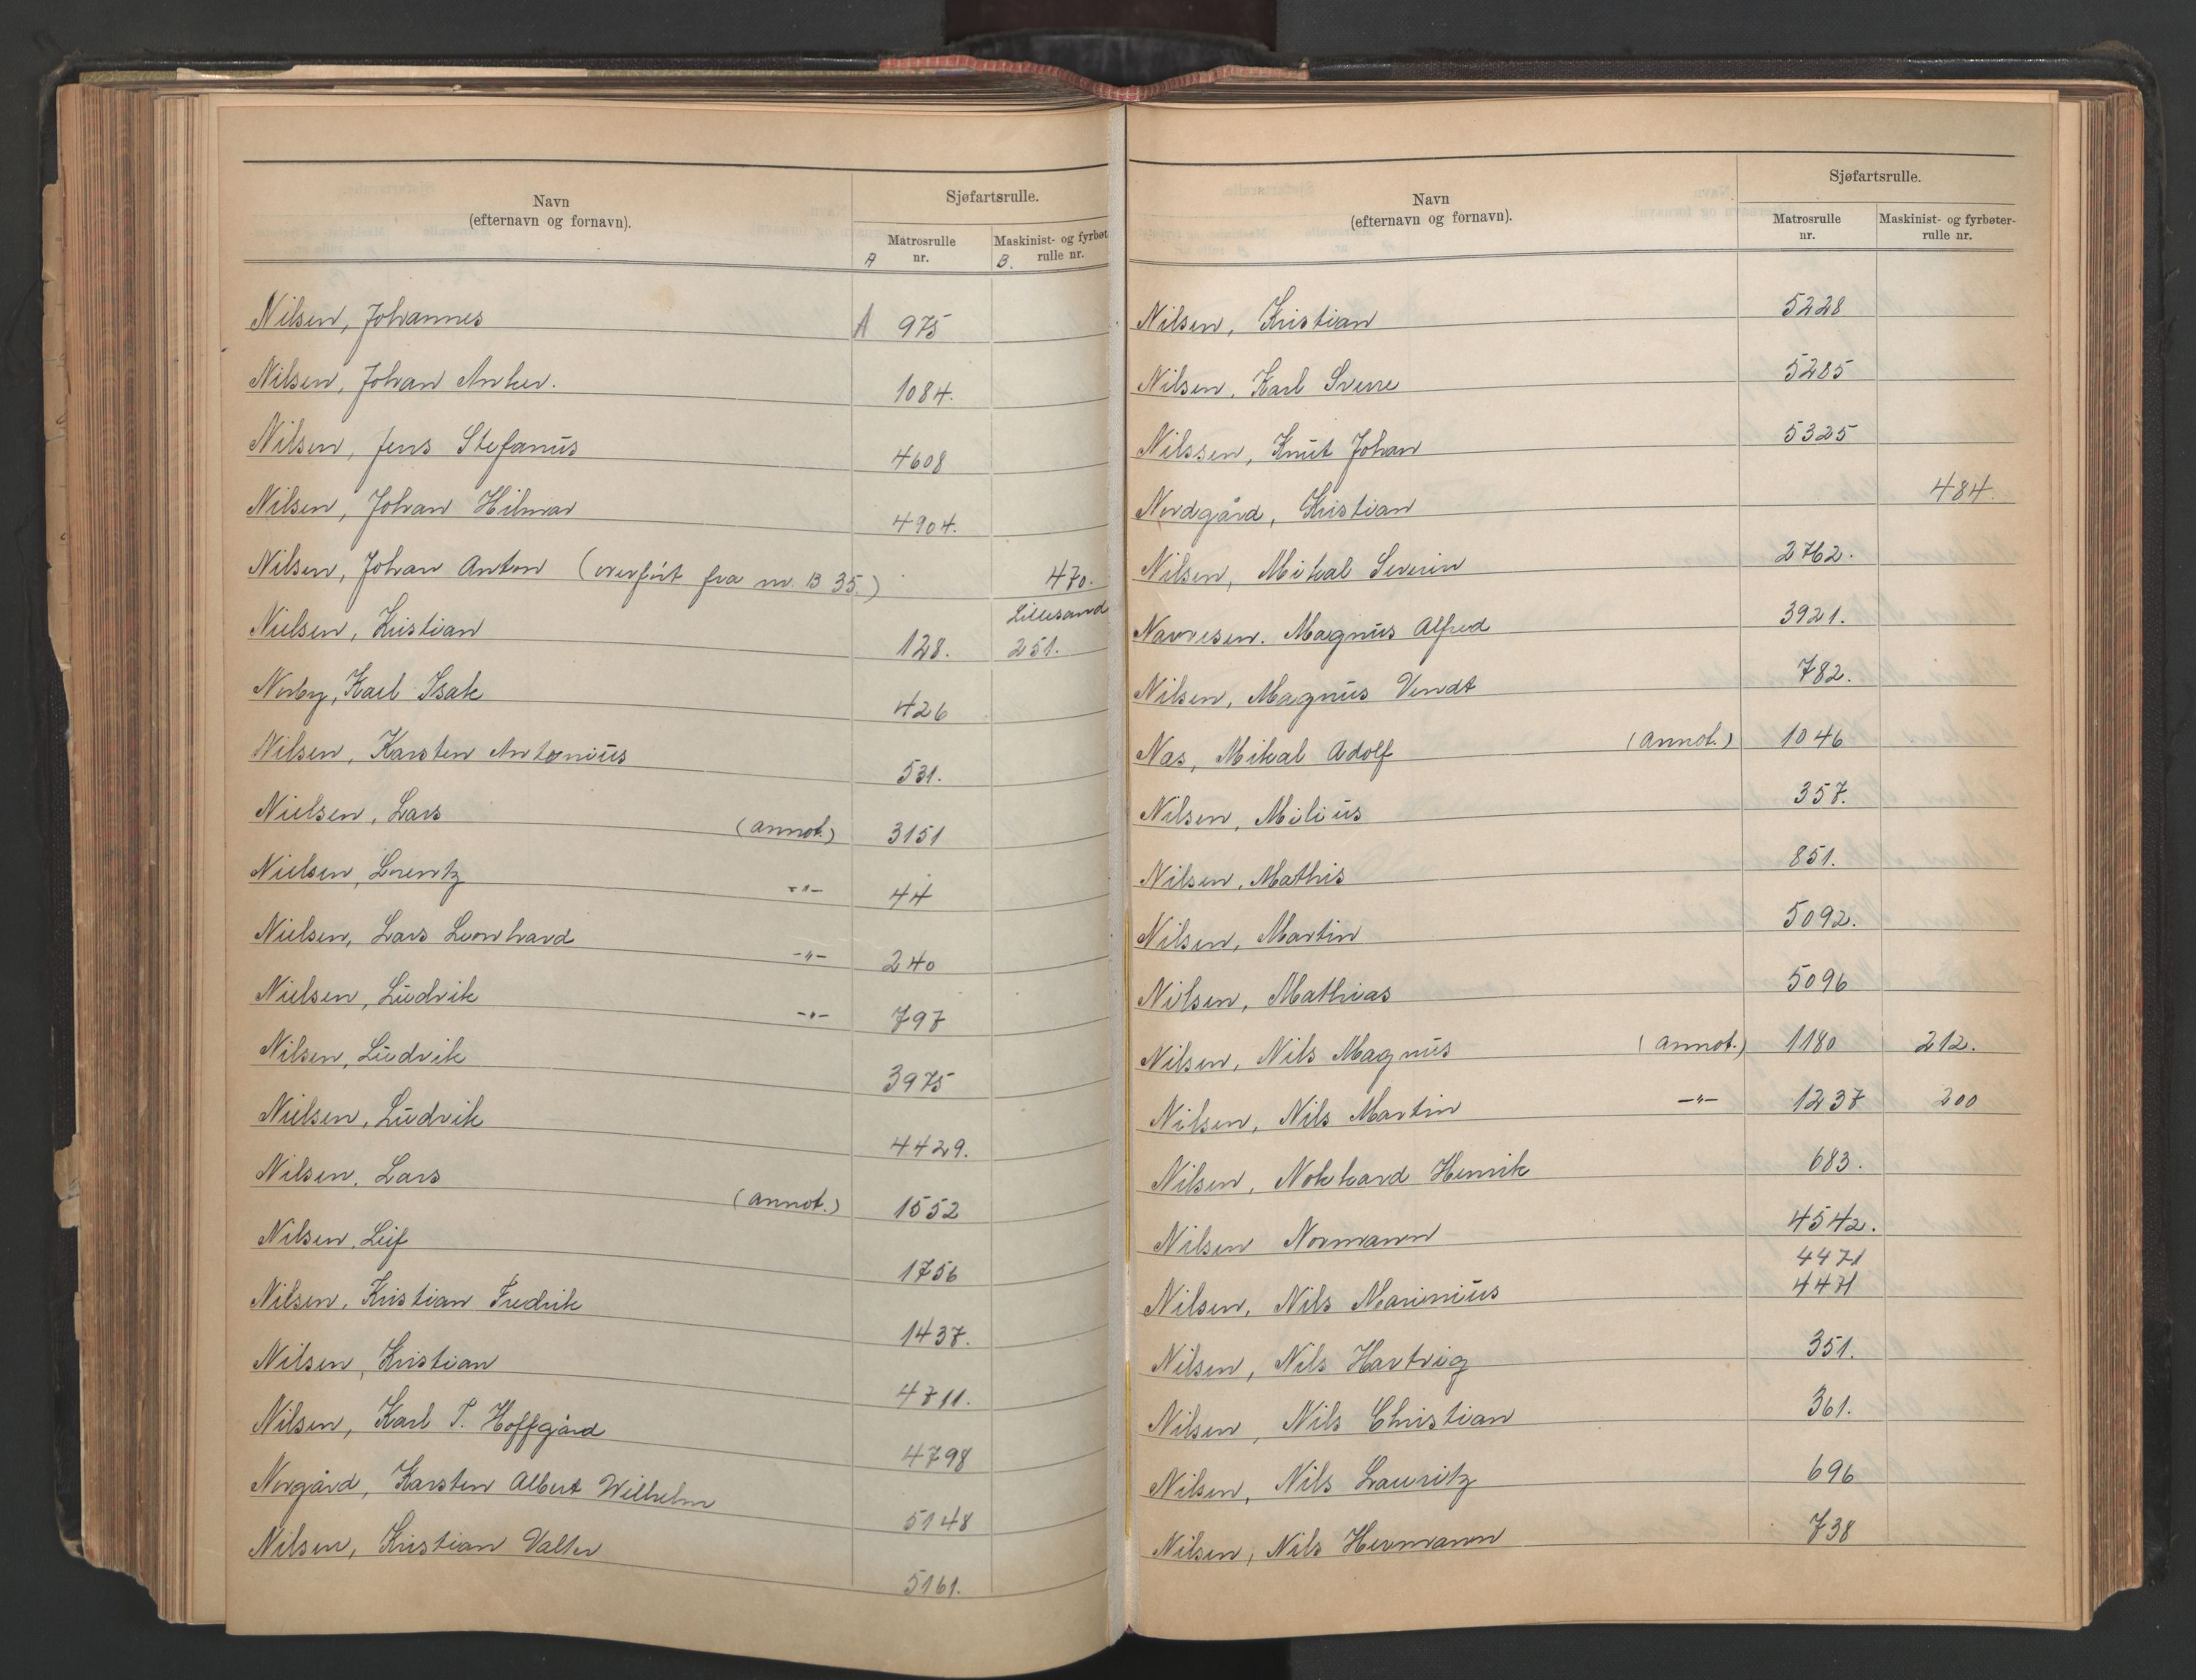 Navn
(efternavn og fornavn).
Sjøfartsrulle.
Matrosrulle
nr.
A
Maskinist- og fyrbøt
rulle nr.
B.
Nilsen, Johannes A 975
Nilsen, Johan Anker. 1084.
Nilsen, Jens Stefanus 4608
Nilsen, Johan Hilmar 4904.
Nilsen, Johan Anton (overført fra nr. B 35.) 470.
Lillesand
Nielsen, Kristian 128. 251.
Norby, Karl Isak 426
Nilsen, Karsten Antonius 531.
Nielsen, Lars (annot.) 3151
Nielsen, Lorentz -"- 44
Nielsen, Lars Leonhard -"- 240
Nielsen, Ludvik -"- 797
Nilsen, Ludvik 3975
Nielsen, Ludvik 4429.
Nilsen, Lars (annot.) 1552
Nilsen, Leif 1756
Nilsen, Kristian Fredrik 1437.
Nilsen, Kristian 4711.
Nilsen, Karl T. Hoffgård 4798
Norgård, Karsten Albert Wilhelm 5148
Nilsen, Kristian Valter 5161.
Navn
(efternavn og fornavn).
Sjøfartsrulle.
Matrosrulle
nr.
Maskinist- og fyrbøter-
rulle nr.
Nilsen, Kristian 5228
Nilsen, Karl Sverre 5285
Nilssen, Knut Johan 5325
Nordgård, Kristian 484.
Nilsen, Mikal Severin 2762.
Navresen. Magnus Alfred 3921.
Nilsen, Magnus Vendt 782.
Nas, Mikal Adolf (annot.) 1046
Nilsen, Milius 357.
Nilsen, Mathis 851.
Nilsen, Martin 5092.
Nilsen, Mathias 5096
Nilsen, Nils Magnus (annot.) 1180 212.
Nilsen, Nils Martin -"- 1237 200
Nilsen, Nokkard Henrik 683.
Nilsen Normann 4542.
4471
Nilsen, Nils Marinius 4471
Nilsen, Nils Hartvig 351.
Nilsen, Nils Christian 361.
Nilsen, Nils Lauritz 696
Nilsen, Nils Hermann 738